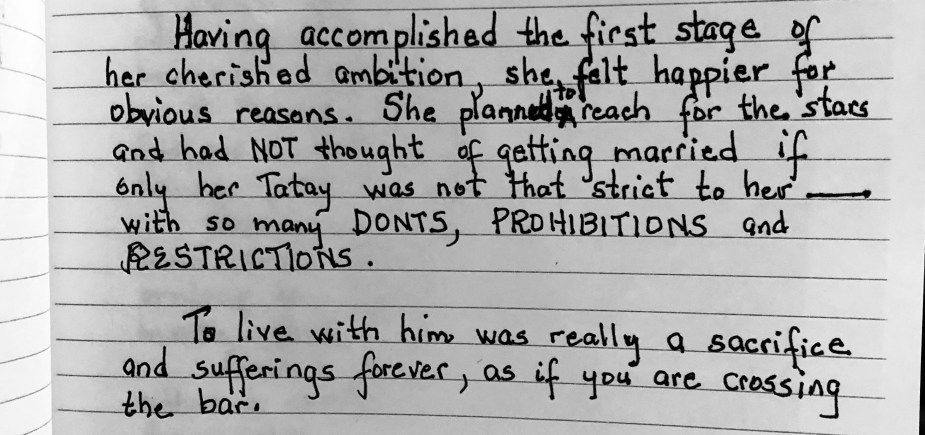 Having accomplished the first stage of
her cherished ambition, she felt happier for
obvious reasons. She planned to reach for the stars
and had NOT thought of getting married if
only her Tatay was not that strict to her —
with so many DONTS, PROHIBITIONS and
RESTRICTIONS.
To live with him was really a sacrifice
and sufferings forever, as if you are crossing
the bar.